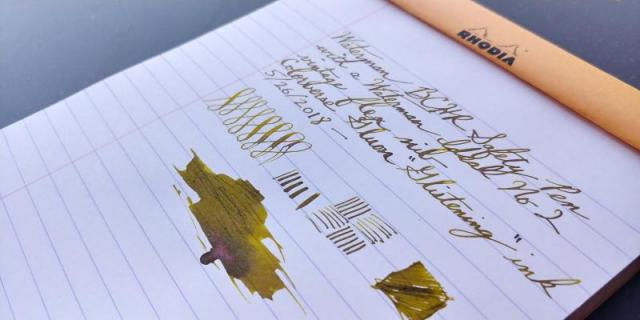 RHODIA
Waterman BCHR Safety Pen
with a Waterman Ideal No 2
vintage flex nib
Colorverse Gluon "Glistening" ink
5/26/2018 —